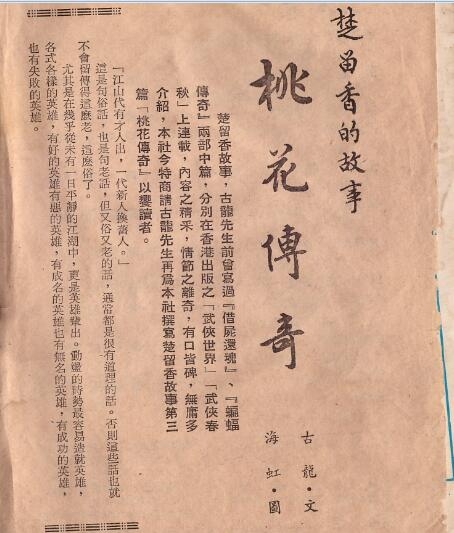 楚留香的故事
桃花傳奇
古龍・文
海虹・圖
楚留香故事，古龍先生前曾寫過『借屍還魂』、『蝙蝠
傳奇』兩部中篇，分別在香港出版之「武俠世界」「武俠春
秋」上連載，內容之精釆，情節之離奇，有口皆碑，無庸多
介紹，本社今特商請古龍先生再爲本社撰寫楚留香故事第三
篇「桃花傳奇」以饗讀者。
『江山代有才人出，一代新人換舊人。』
這是句俗話，也是句老話，但又俗又老的話，通常都是很有道理的話。否則這些話也就
不會留傳得這麼老，這麼俗了。
尤其是在幾乎從未有一日平靜的江湖中，更是英雄輩出。動盪的時勢最容易造就英雄，
各式各樣的英雄，有好的英雄有惡的英雄，有成名的英雄也有無名的英雄，有成功的英雄，
也有失敗的英雄。